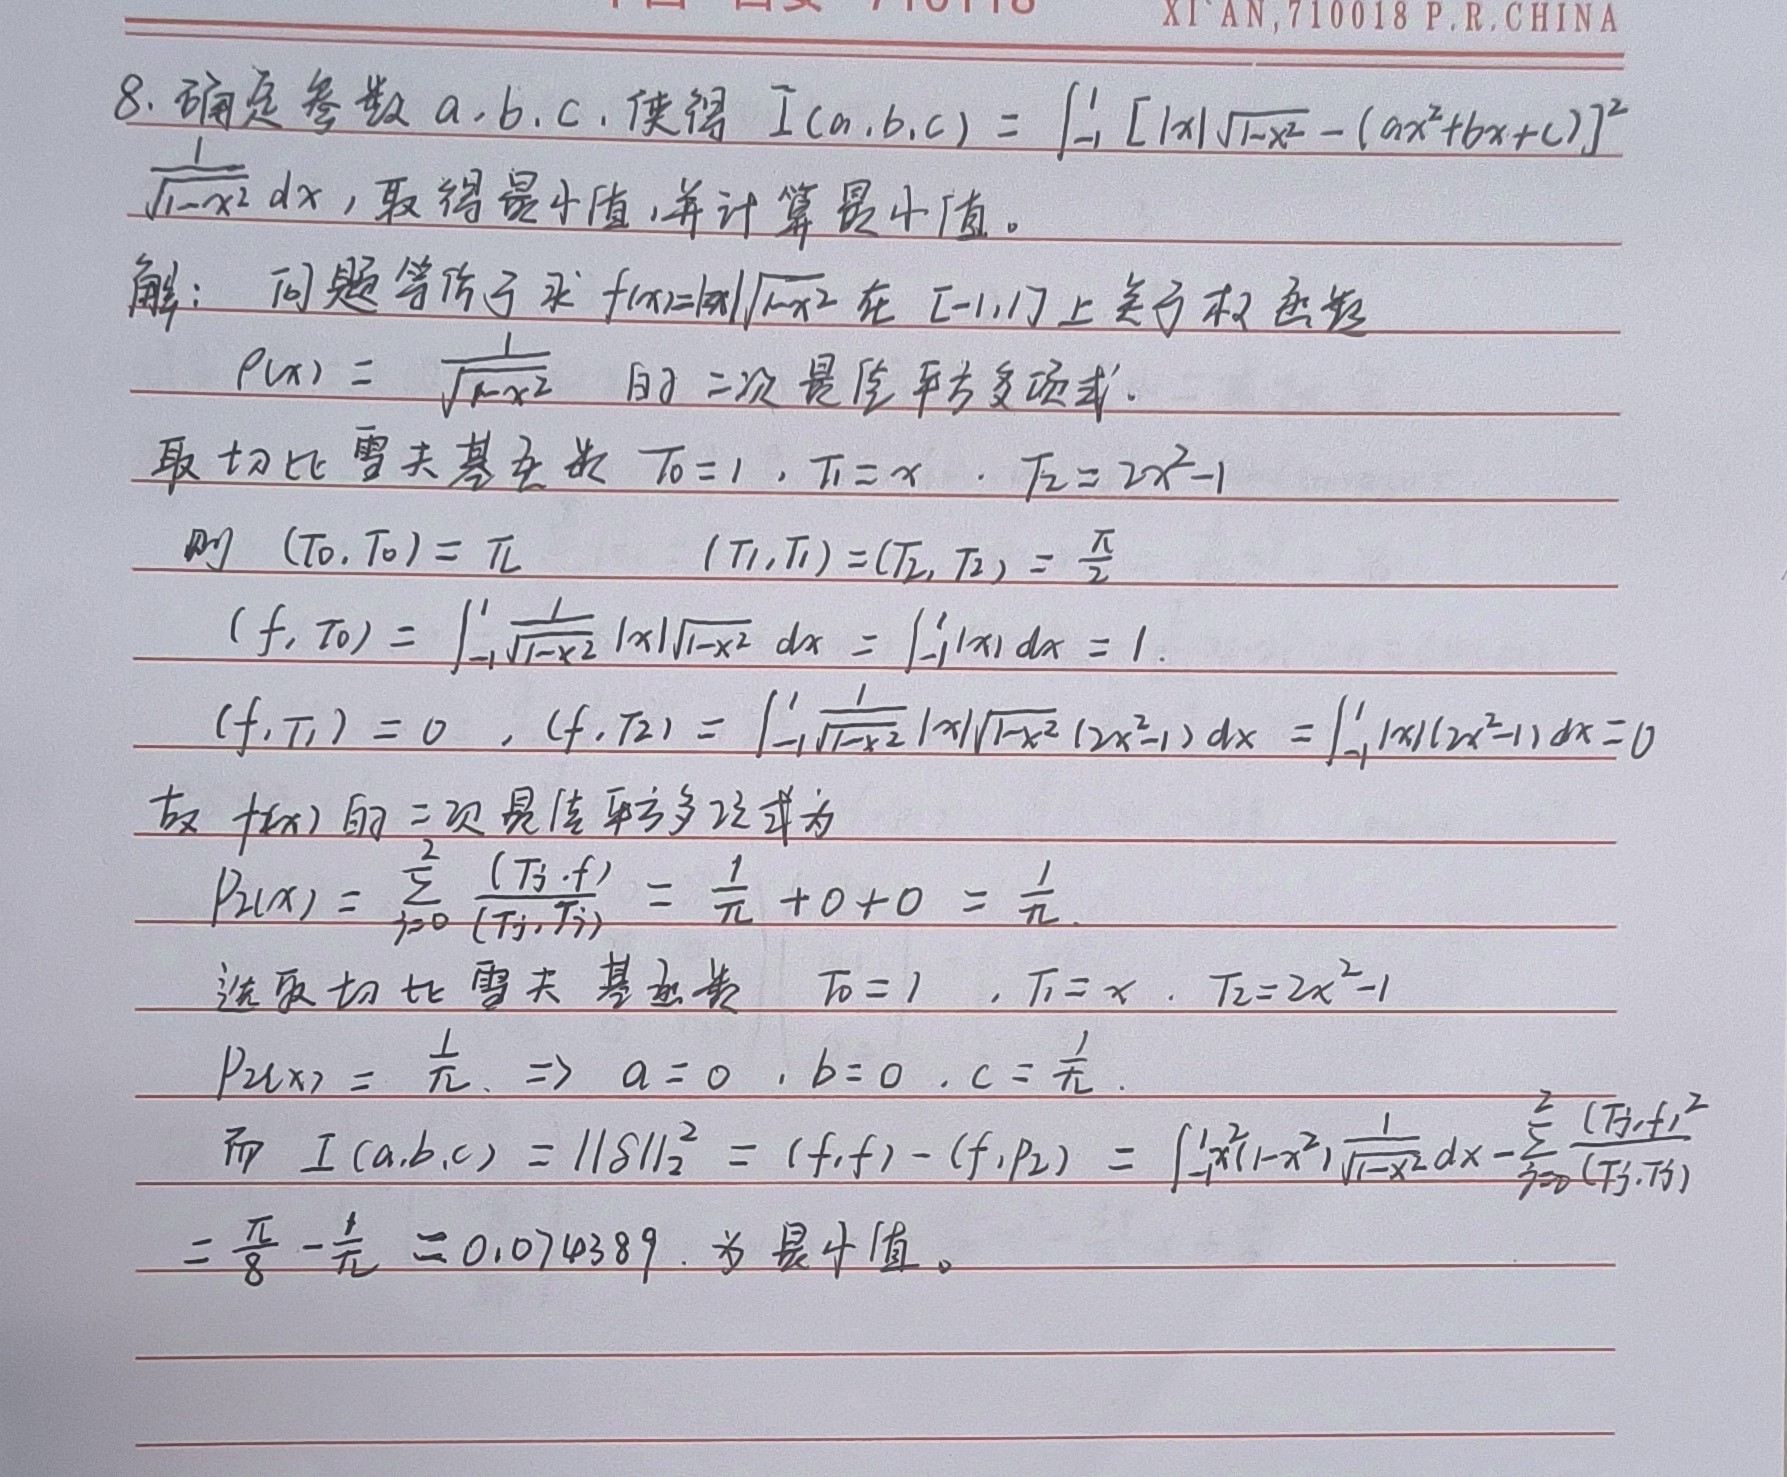 XI'AN,710018 P.R.CHINA
8. 确定参数 a.b.c. 使得 I(a.b.c) = ∫₋₁¹ [|x|√(1-x²) - (ax²+bx+c)]²
1/√(1-x²) dx, 取得最小值, 并计算最小值。
解: 问题等价于求 f(x)=|x|√(1-x²) 在 [-1,1] 上关于权函数
ρ(x) = 1/√(1-x²) 的二次最佳平方多项式.
取切比雪夫基函数 T₀=1, T₁=x . T₂=2x²-1
则 (T₀.T₀) = π (T₁,T₁) = (T₂,T₂) = π/2
(f,T₀) = ∫₋₁¹ 1/√(1-x²) |x|√(1-x²) dx = ∫₋₁¹ |x| dx = 1.
(f,T₁) = 0 , (f,T₂) = ∫₋₁¹ 1/√(1-x²) |x|√(1-x²) (2x²-1) dx = ∫₋₁¹ |x|(2x²-1) dx = 0
故 f(x) 的二次最佳平方多项式为
P₂(x) = Σ_{j=0}^{2} (Tj.f)/(Tj,Tj) = 1/π + 0 + 0 = 1/π.
选取切比雪夫基函数 T₀=1 , T₁=x . T₂=2x²-1
P₂(x) = 1/π. ⇒ a=0 , b=0 . c=1/π.
而 I(a.b.c) = ||δ||₂² = (f,f) - (f,P₂) = ∫₋₁¹ x²(1-x²) 1/√(1-x²) dx - Σ_{j=0}^{2} (Tj,f)²/(Tj.Tj)
= π/8 - 1/π = 0.074389. 为最小值。